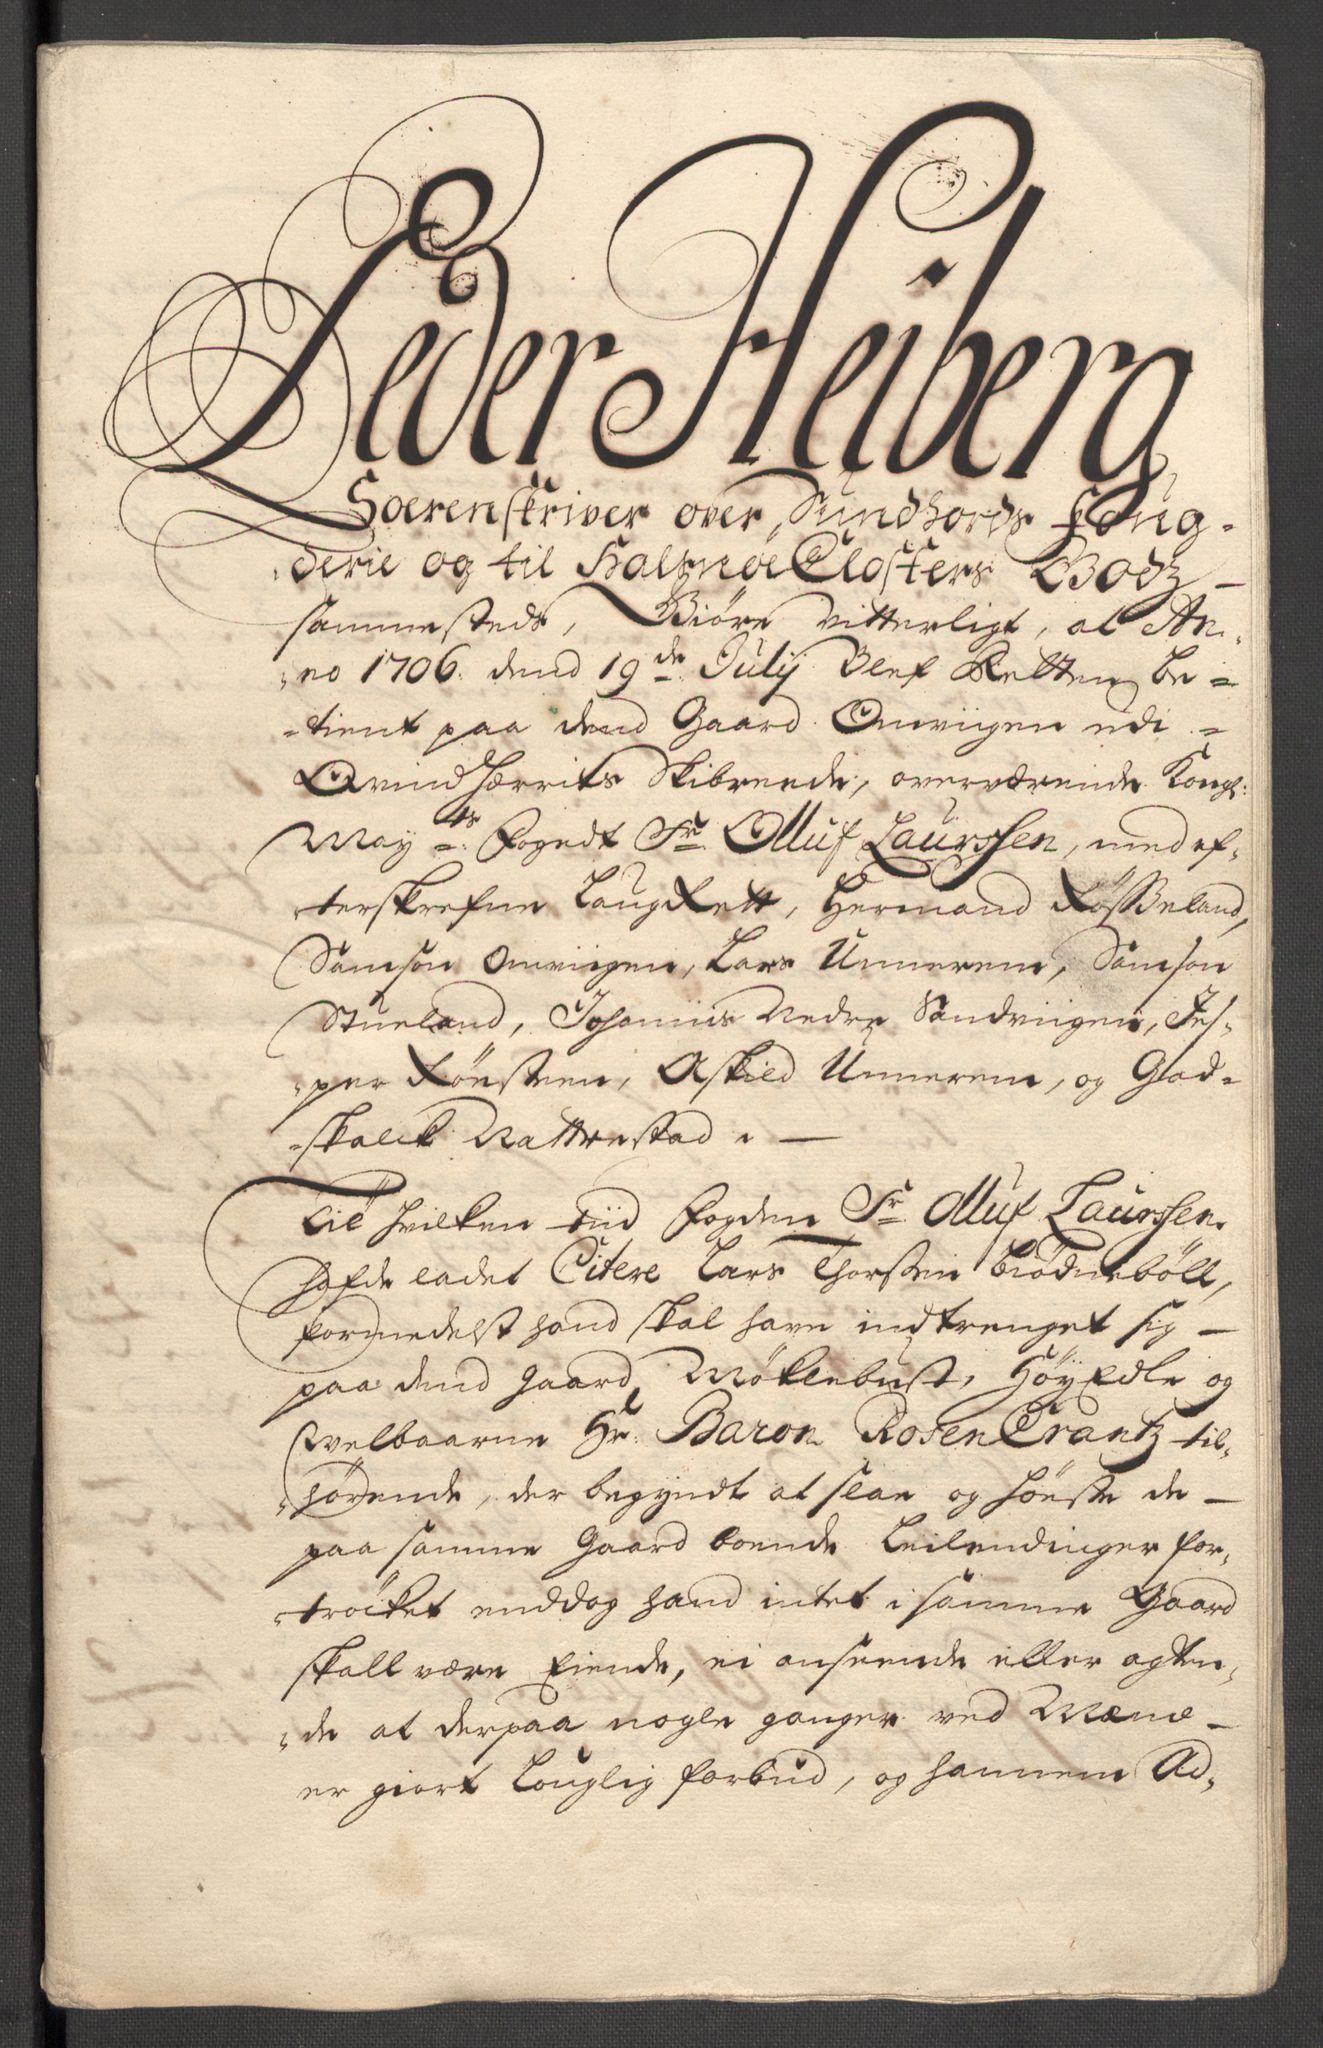 Peder Heiberg
Soerenskriver over Sundhords Foug-
derie og til Halsnøe Closters Godz
sammesteds, Giøre vitterligt, at An-
no 1706 dend 19de July blef Retten be-
tient paa dend Gaard Omviigen udi
Qvindhærrits Skibreede, overværende Kongl:
Mayts: Fogedt Sr Olluf Laurssen, med ef-
terskrefne LaugRett, Hermand Røsseland,
Samson Omviigen, Lars Unnerem, Samson
Stueland, Johanius Nedre Sandviigen, Jes-
per Røesten, Askild Unnerem, og Glad-
skalck Nattrestad.
Til hvilken tiid Fogden Sr Olluf Laurssen
hafde ladet Citere Lars Thorsten biødnebøll,
formedelst hand skal have indtrenget sig
paa dend gaard Møklebust, HøyEdle og
Welbaarne Hr: Baron RosenCrantz til-
hørende, der begyndt at slae og høste de
paa samme Gaard boende Leilendinger for-
trocket enddog hand intet i samme Gaard
skall være Eiende, ei anseende eller agten-
de at derpaa nogle ganger ved Mænd
er giort Louglig forbud, og hannem Ad-